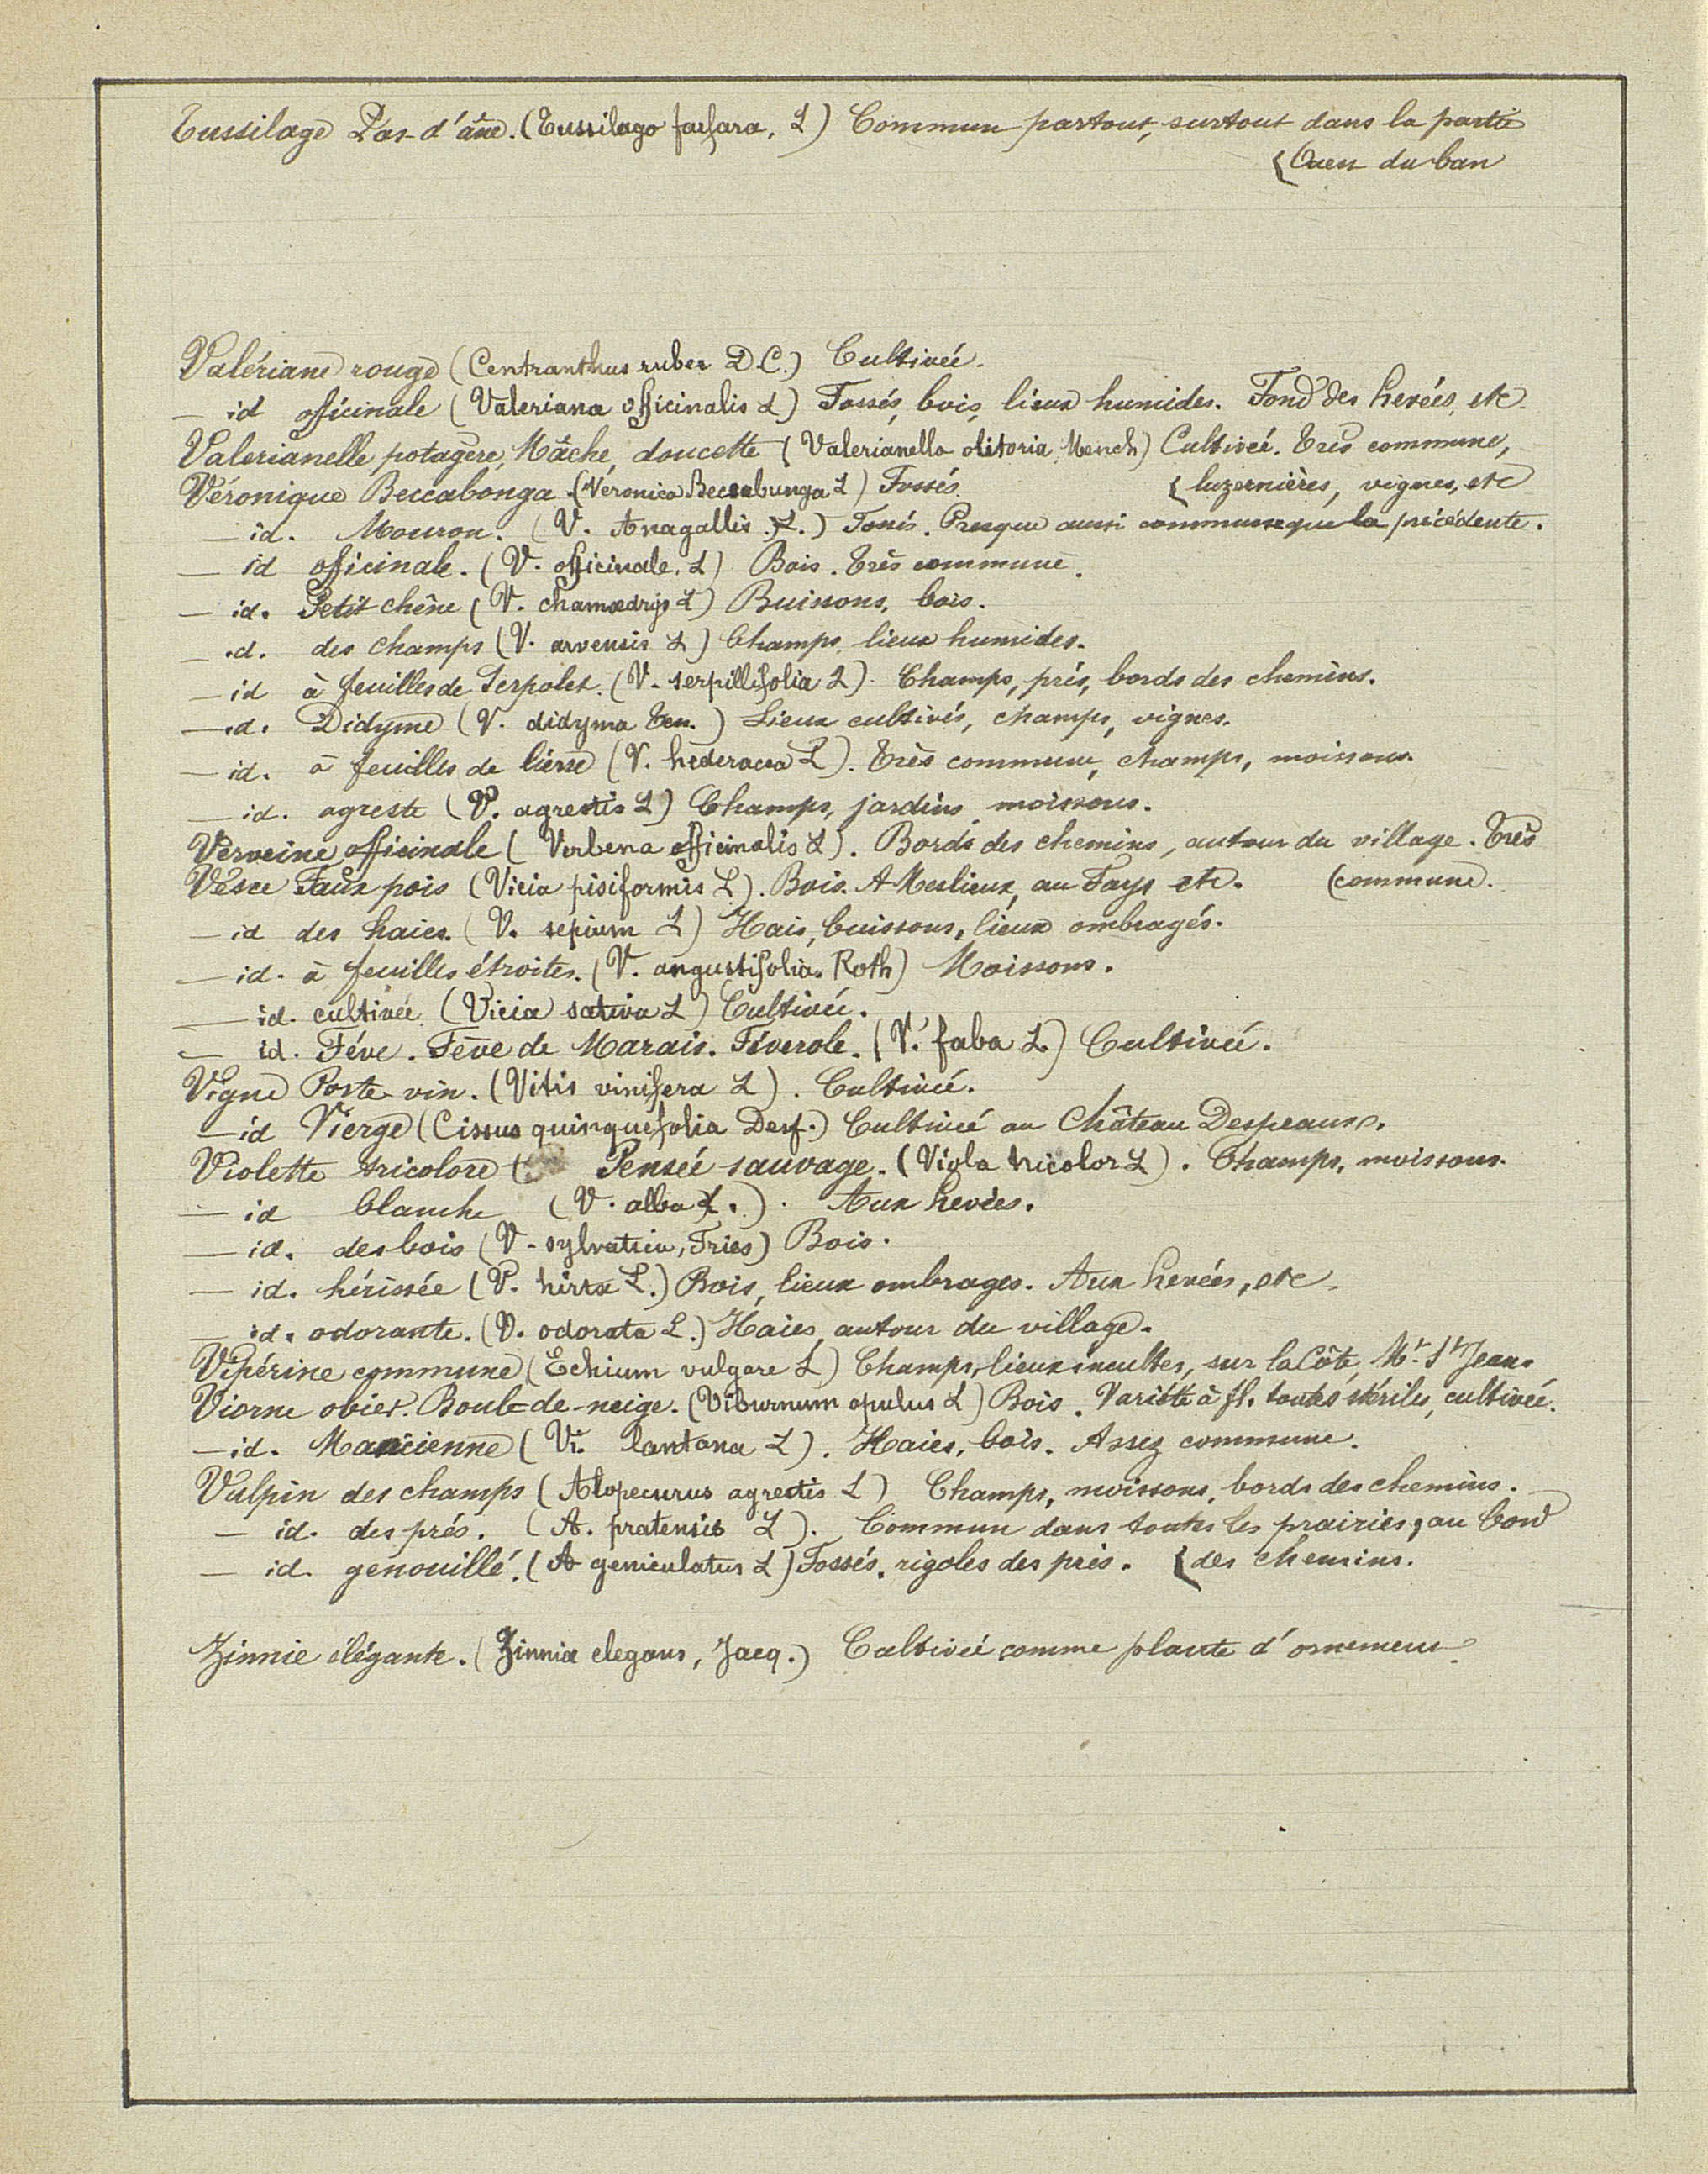 Tussilage Pas-d'âne. (Tussilago farfara, L) Commun partout, surtout dans la partie
(Ouest du ban
Valériane rouge (Centranthus ruber D.C.) Cultivée.
— id officinale (Valeriana officinalis L) Fossés, bois, lieux humides. Fond des hevées, etc.
Valerianelle potagère, Mâche, doucette (Valerianella olitoria, Mench) Cultivée. Très commune,
Véronique Beccabonga. (Veronica Beccabunga L) Fossés. (luzernières, vignes, etc
— id. Mouron. (V. Anagallis. L.) Fossés. Presque aussi commune que la précédente.
— id officinale. (V. officinale. L) Bois. Très commune.
— id. Petit chêne (V. chamædrys L) Buissons, bois.
— id. des champs (V. arvensis L) Champs, lieux humides.
— id à feuilles de Serpolet. (V. serpillifolia L). Champs, prés, bords des chemins.
— id. Didyme (V. didyma Ten.) Lieux cultivés, champs, vignes.
— id. à feuilles de lierre (V. hederacea L). Très commune, champs, moissons.
— id. agreste (V. agrestis L) Champs, jardins, moissons.
Verveine officinale (Verbena officinalis L). Bords des chemins, autour du village. Très
Vesce Faux pois (Vicia pisiformis L). Bois. A Meslieux, au Fays etc. (commune.
— id des haies. (V. sepium L) Hais, buissons, lieux ombragés.
— id. à feuilles étroites. (V. angustifolia. Roth) Moissons.
— id. cultivée (Vicia sativa L) Cultivée.
— id. Féve. Fève de Marais. Féverole. (V. faba L) Cultivée.
Vigne Porte-vin. (Vitis vinifera L). Cultivée.
— id Vierge (Cissus quinquefolia Desf.) Cultivée au Château Despeaux.
Violette tricolore ( Pensée sauvage. (Viola tricolor L). Champs, moissons.
— id blanche (V. alba L.). Aux hevées.
— id. des bois (V. sylvatica, Fries) Bois.
— id. hérissée (V. hirta L.) Bois, lieux ombrages. Aux hevées, etc
— id. odorante. (V. odorata L.) Haies, autour du village.
Vipérine commune (Echium vulgare L) Champs, lieux incultes, sur la Côte, Mt. St Jean.
Viorne obier. Boule-de-neige. (Viburnum opulus L) Bois. Variété à fl. toutes stériles, cultivée.
— id. Mancienne (Vi. lantana L). Haies, bois. Assez commune.
Vulpin des champs (Alopecurus agrestis L) Champs, moissons, bords des chemins.
— id. des prés. (A. pratensis L). Commun dans toutes les prairies, au bord
— id. genouillé. (A geniculatus L) Fossés, rigoles des prés. (des chemins.
Zinnie élégante. (Zinnia elegans, Jacq.) Cultivée comme plante d'ornement.